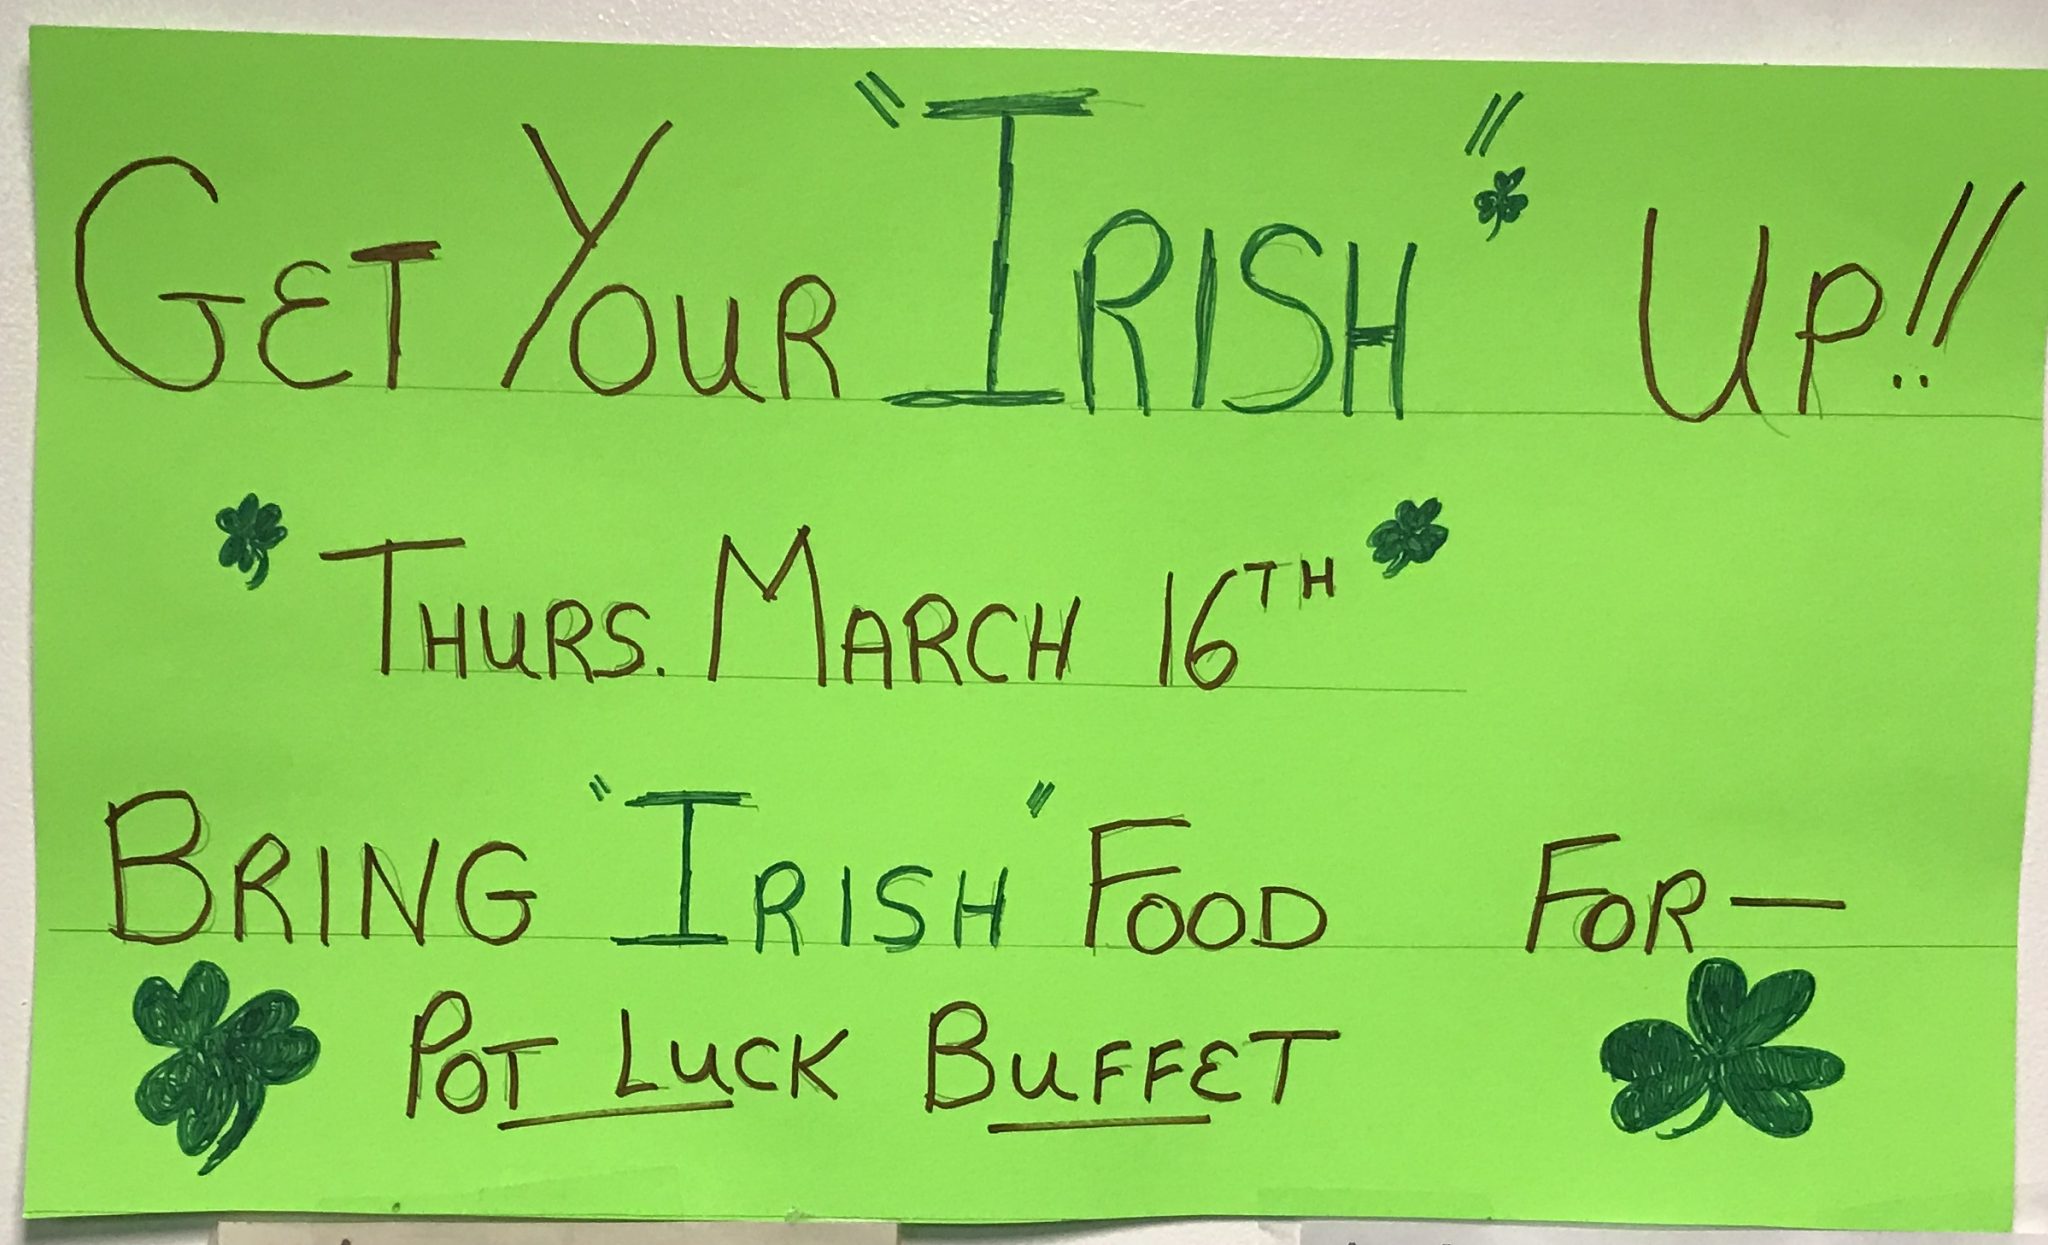 GET YOUR "IRISH" UP!!
THURS. MARCH 16TH
BRING "IRISH" FOOD FOR—
POT LUCK BUFFET